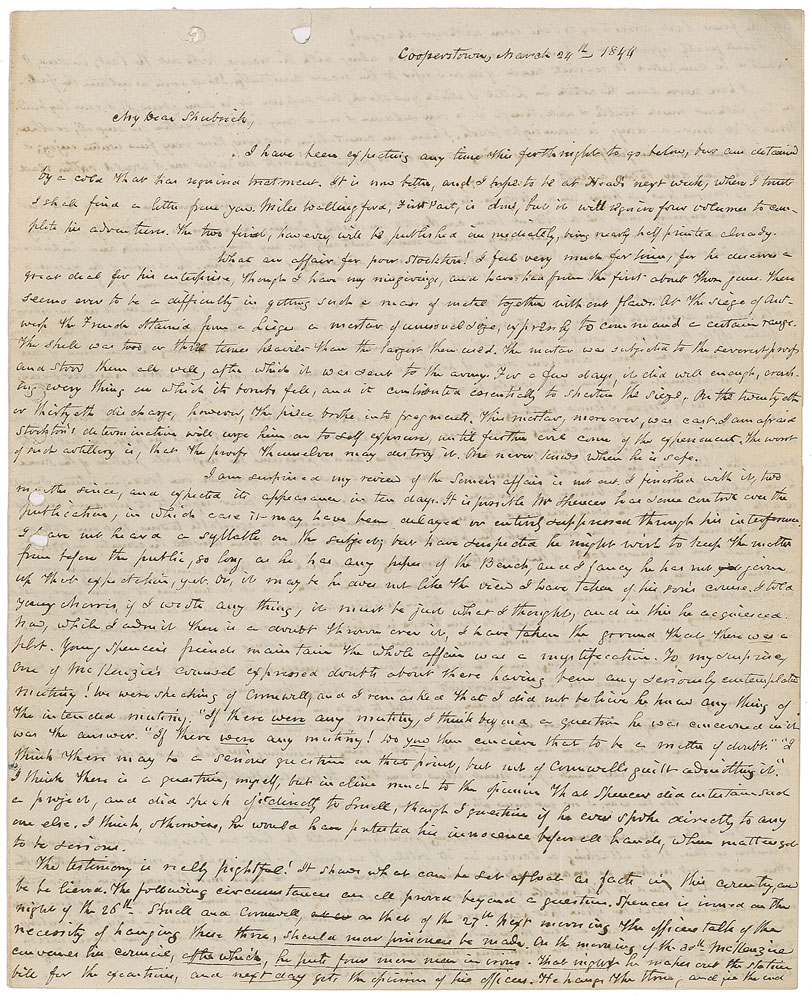 Cooperstown, March 24th 1844
My Dear Shubrick,
I have been expecting any time this forthnight to go below, but am detained
by a cold that has required treatment. It is now better, and I hope to be at Head's next week, where I trust
I shall find a letter from you. Miles Wallingford, First Part, is done, but it will require four volumes to com-
plete his adventures. The two first, however, will be published immediately, being nearly half printed already.
What an affair for poor Stockton! I feel very much for him, for he deserves a
great deal for his enterprise, though I have my misgivings, and have had from the first about those guns. There
seems ever to be a difficulty in getting such a mass of metal together without flaws. At the siege of Ant-
werp the French obtained from a Liege a mortar of unusual size, expressly to command a certain range.
The shell was two or three times heavier than the largest then used. The mortar was subjected to the severest proofs
and stood them all well, after which it was sent to the army. For a few days, it did well enough, crush-
ing every thing on which its bombs fell, and it contributed essentially to shorten the siege. On the twentyeth
or thirtyeth discharge, however, the piece broke into fragments. This mortar, moreover, was cast. I am afraid
Stockton's determination will urge him on to self exposure, until further evil come of the experiment. The worst
of such artillery is, that the proofs themselves may destroy it. One never knows when he is safe.
I am surprised my review of the Somers affair is not out. I finished with it, two
months since, and expected its appearance in ten days. It is possible Mr Spencer has some control over the
publication, in which case it may have been delayed or entirely suppressed through his interference.
I have not heard a syllable on the subject, but have suspected he might wish to keep the matter
from before the public, so long as he has any hopes of the Bench, and I fancy he has not given
up that expectation, yet. Or, it may be he does not like the view I have taken of his son's course. I told
young Morris, if I wrote any thing, it must be just what I thought, and in this he acquiesced.
Now, while I admit there is a doubt thrown over it, I have taken the ground that there was a
plot. Young Spencer's friends maintain the whole affair was a mystification. To my surprise,
one of McKenzie's counsel expressed doubts about there having been any seriously contemplated
mutiny! We were speaking of Cromwell, and I remarked that I did not believe he knew any thing of
the intended mutiny. "If there were any mutiny, I think beyond a question he was concerned in it"
was the answer. "If there were any mutiny! Do you then conceive that to be a matter of doubt." "I
think there may be a serious question on that point, but not of Cromwell's guilt admitting it".
I think there is a question, myself, but incline much to the opinion that Spencer did entertain such
a project, and did speak of it directly to Small, though I question if he ever spoke directly to any
one else. I think, otherwise, he would have protested his innocence before all hands, when matters got
to be serious.
The testimony is really frightful! It shows what can be set afloat as facts in this country, and
be believed. The following circumstances are all proved beyond a question. Spencer is ironed on the
night of the 26th. Small and Cromwell, on that of the 27th. Next morning the officers talk of the
necessity of hanging these three, should more prisoners be made. On the morning of the 30th McKenzie
convenes his council, after which, he puts four more men in irons. That night he makes out the station
bill for the execution, and next day gets the opinion of his officers. He hangs the three, and in the end